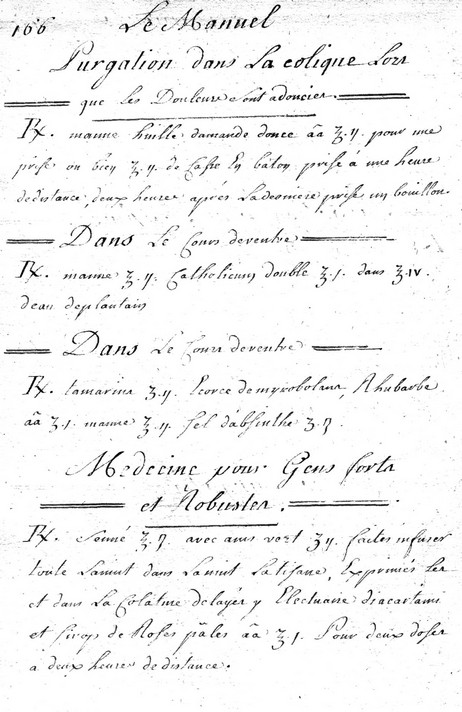 166 Le Manuel
Purgation dans La colique Lors
que Les Douleurs sont adoucies.
℞. manne huille damande douce āā ʒ.ij. pour une
prise ou bien ʒ.ij. de Casse En bâton prise à une heure
dedistance deux heures après Laderniere prise un bouillon.
Dans Le Cours deventre
℞. manne ʒ.ij. Catholicum double ʒ.j. dans ʒ.iv.
deau deplantain
Dans Le Cours deventre
℞. tamarins ʒ.ij. Ecorce demyrobolans, Rhubarbe
āā ʒ.j. manne ʒ.ij. sel d'absinthe
Medecine pour Gens forts
et Robustes.
℞. Senné avec anis vert ʒ.ij. faites infuser
toute Lanuit dans Latisane, Exprimés Les
et dans La Colature delayés y Electuaire diacartami
et sirop de Roses pâles āā ʒ.j. Pour deux doses
a deux heures de distance.